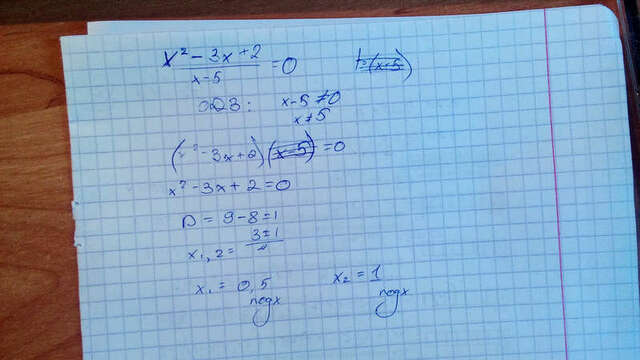 x² - 3x + 2 / x-5 = 0
ОДЗ: x-5 ≠ 0
x ≠ 5
(x² - 3x + 2)(x-5) = 0
x² - 3x + 2 = 0
D = 9 - 8 = 1
x₁,₂ = 3 ± 1 /
x₁ = 0,5 x₂ = 1
подх подх